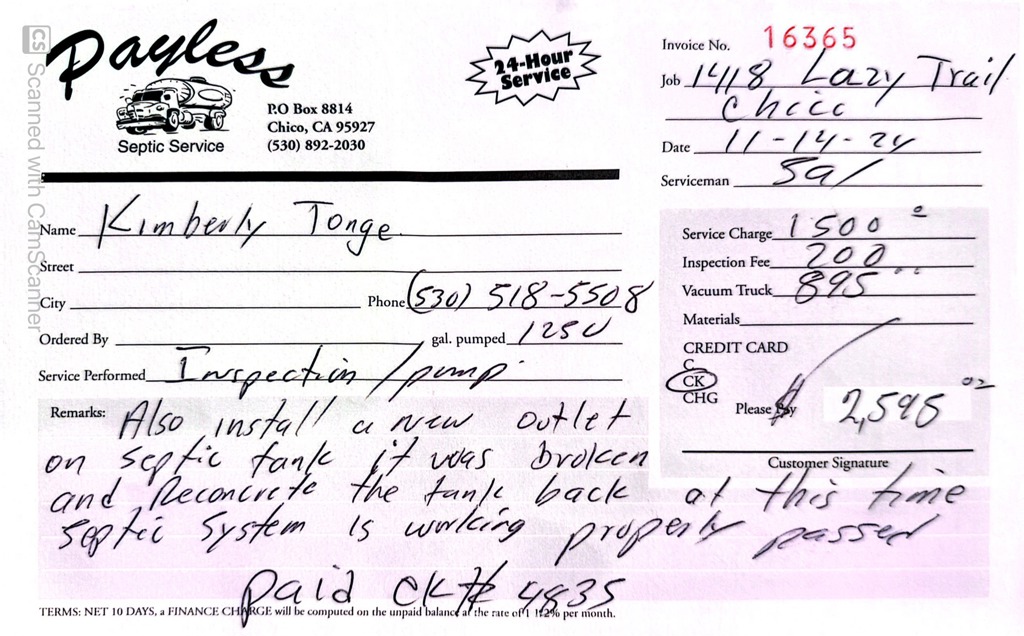 CS Scanned with CamScanner
Payless
Septic Service
P.O Box 8814
Chico, CA 95927
(530) 892-2030
24-Hour
Service
Invoice No. 16365
Job 1418 Lazy Trail
Chico
Date 11-14-24
Serviceman Sal
Name Kimberly Tonge
Street
City Phone (530) 518-5508
Ordered By gal. pumped 1250
Service Performed Inspection/pump
Service Charge 1500
Inspection Fee 200
Vacuum Truck 895
Materials
CREDIT CARD
C
CK
CHG
Please Pay $ 2,595
Customer Signature
Remarks: Also install a new outlet
on septic tank it was broken
and Reconcrete the tank back at this time
septic system is working properly passed
paid CK# 4835
TERMS: NET 10 DAYS, a FINANCE CHARGE will be computed on the unpaid balance at the rate of 1 1/2% per month.